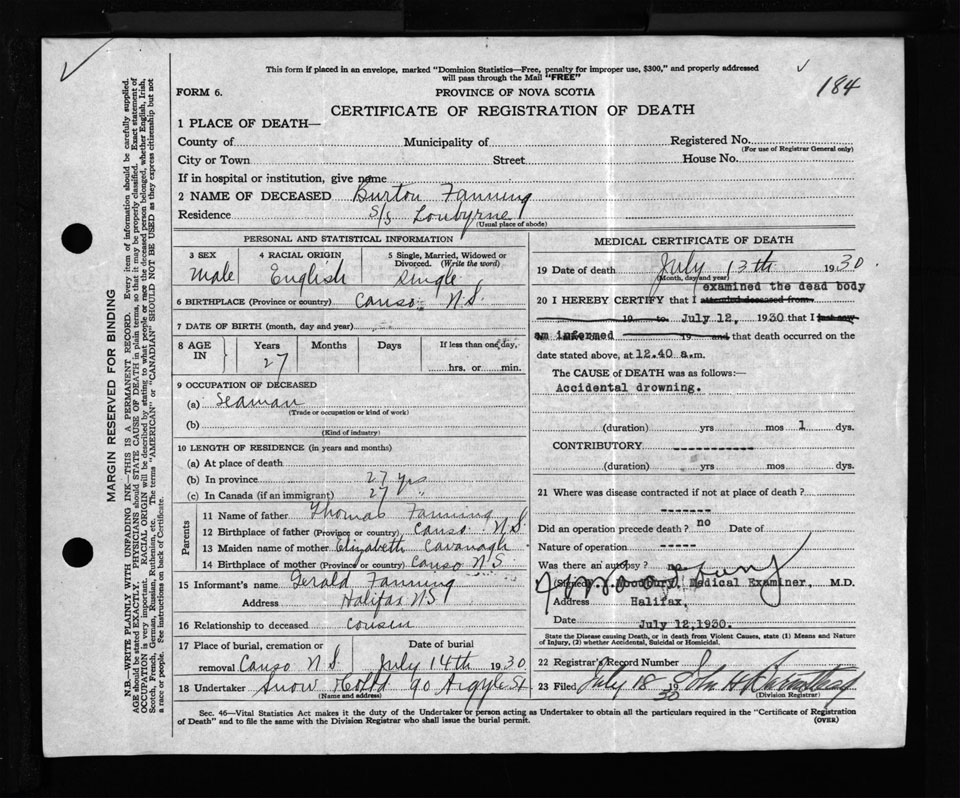 This form if placed in an envelope, marked "Dominion Statistics—Free, penalty for improper use, $300," and properly addressed
will pass through the Mail "FREE"
184
FORM 6.
PROVINCE OF NOVA SCOTIA
CERTIFICATE OF REGISTRATION OF DEATH
1 PLACE OF DEATH—
County of Municipality of Registered No.
(For use of Registrar General only)
City or Town Street House No.
If in hospital or institution, give name
2 NAME OF DECEASED Burton Fanning
Residence S/S Loubyrne
(Usual place of abode)
PERSONAL AND STATISTICAL INFORMATION
3 SEX 4 RACIAL ORIGIN 5 Single, Married, Widowed or
Divorced. (Write the word)
Male English Single
6 BIRTHPLACE (Province or country) Canso N.S.
7 DATE OF BIRTH (month, day and year)
8 AGE IN Years Months Days If less than one day,
27 hrs. or min.
9 OCCUPATION OF DECEASED
(a) Seaman
(Trade or occupation or kind of work)
(b)
(Kind of industry)
10 LENGTH OF RESIDENCE (in years and months)
(a) At place of death
(b) In province 27 yrs
(c) In Canada (if an immigrant) 27 "
Parents
11 Name of father Thomas Fanning
12 Birthplace of father (Province or country) Canso N.S.
13 Maiden name of mother Elizabeth Cavanagh
14 Birthplace of mother (Province or country) Canso N.S.
15 Informant's name Gerald Fanning
Address Halifax N S
16 Relationship to deceased Cousin
17 Place of burial, cremation or Date of burial
removal Canso N.S. July 14th 1930
18 Undertaker Snow & Co Ltd 90 Argyle St
(Name and address)
MEDICAL CERTIFICATE OF DEATH
19 Date of death July 13th 1930.
(Month, day and year)
examined the dead body
20 I HEREBY CERTIFY that I attended deceased from
19 to July 12, 1930 that I last saw
am informed 19 and that death occurred on the
date stated above, at 12.40 a.m.
The CAUSE of DEATH was as follows:—
Accidental drowning.
(duration) yrs mos 1 dys.
CONTRIBUTORY -------------
(duration) yrs. mos. dys.
21 Where was disease contracted if not at place of death?
-------
Did an operation precede death? no Date of
Nature of operation -----
Was there an autopsy? no
(Signed) Medical Examiner, M.D.
Address Halifax,
Date July 12,1930.
State the Disease causing Death, or in death from Violent Causes, state (1) Means and Nature
of Injury, (2) whether Accidental, Suicidal or Homicidal.
22 Registrar's Record Number
23 Filed July 18 1930 John H
(Division Registrar)
Sec. 46—Vital Statistics Act makes it the duty of the Undertaker or person acting as Undertaker to obtain all the particulars required in the "Certificate of Registration
of Death" and to file the same with the Division Registrar who shall issue the burial permit.
(OVER)
MARGIN RESERVED FOR BINDING
N.B.—WRITE PLAINLY WITH UNFADING INK—THIS IS A PERMANENT RECORD. Every item of information should be carefully supplied.
AGE should be stated EXACTLY. PHYSICIANS should STATE CAUSE OF DEATH in plain terms, so that it may be properly classified. Exact statement of
OCCUPATION is very important. RACIAL ORIGIN will be described by stating to what people or race the deceased person belonged, whether English, Irish,
Scotch, French, German, Russian, Ruthenian, etc. The terms "AMERICAN" or "CANADIAN" SHOULD NOT BE USED as they express citizenship but not
a race or people. See instructions on back of Certificate.